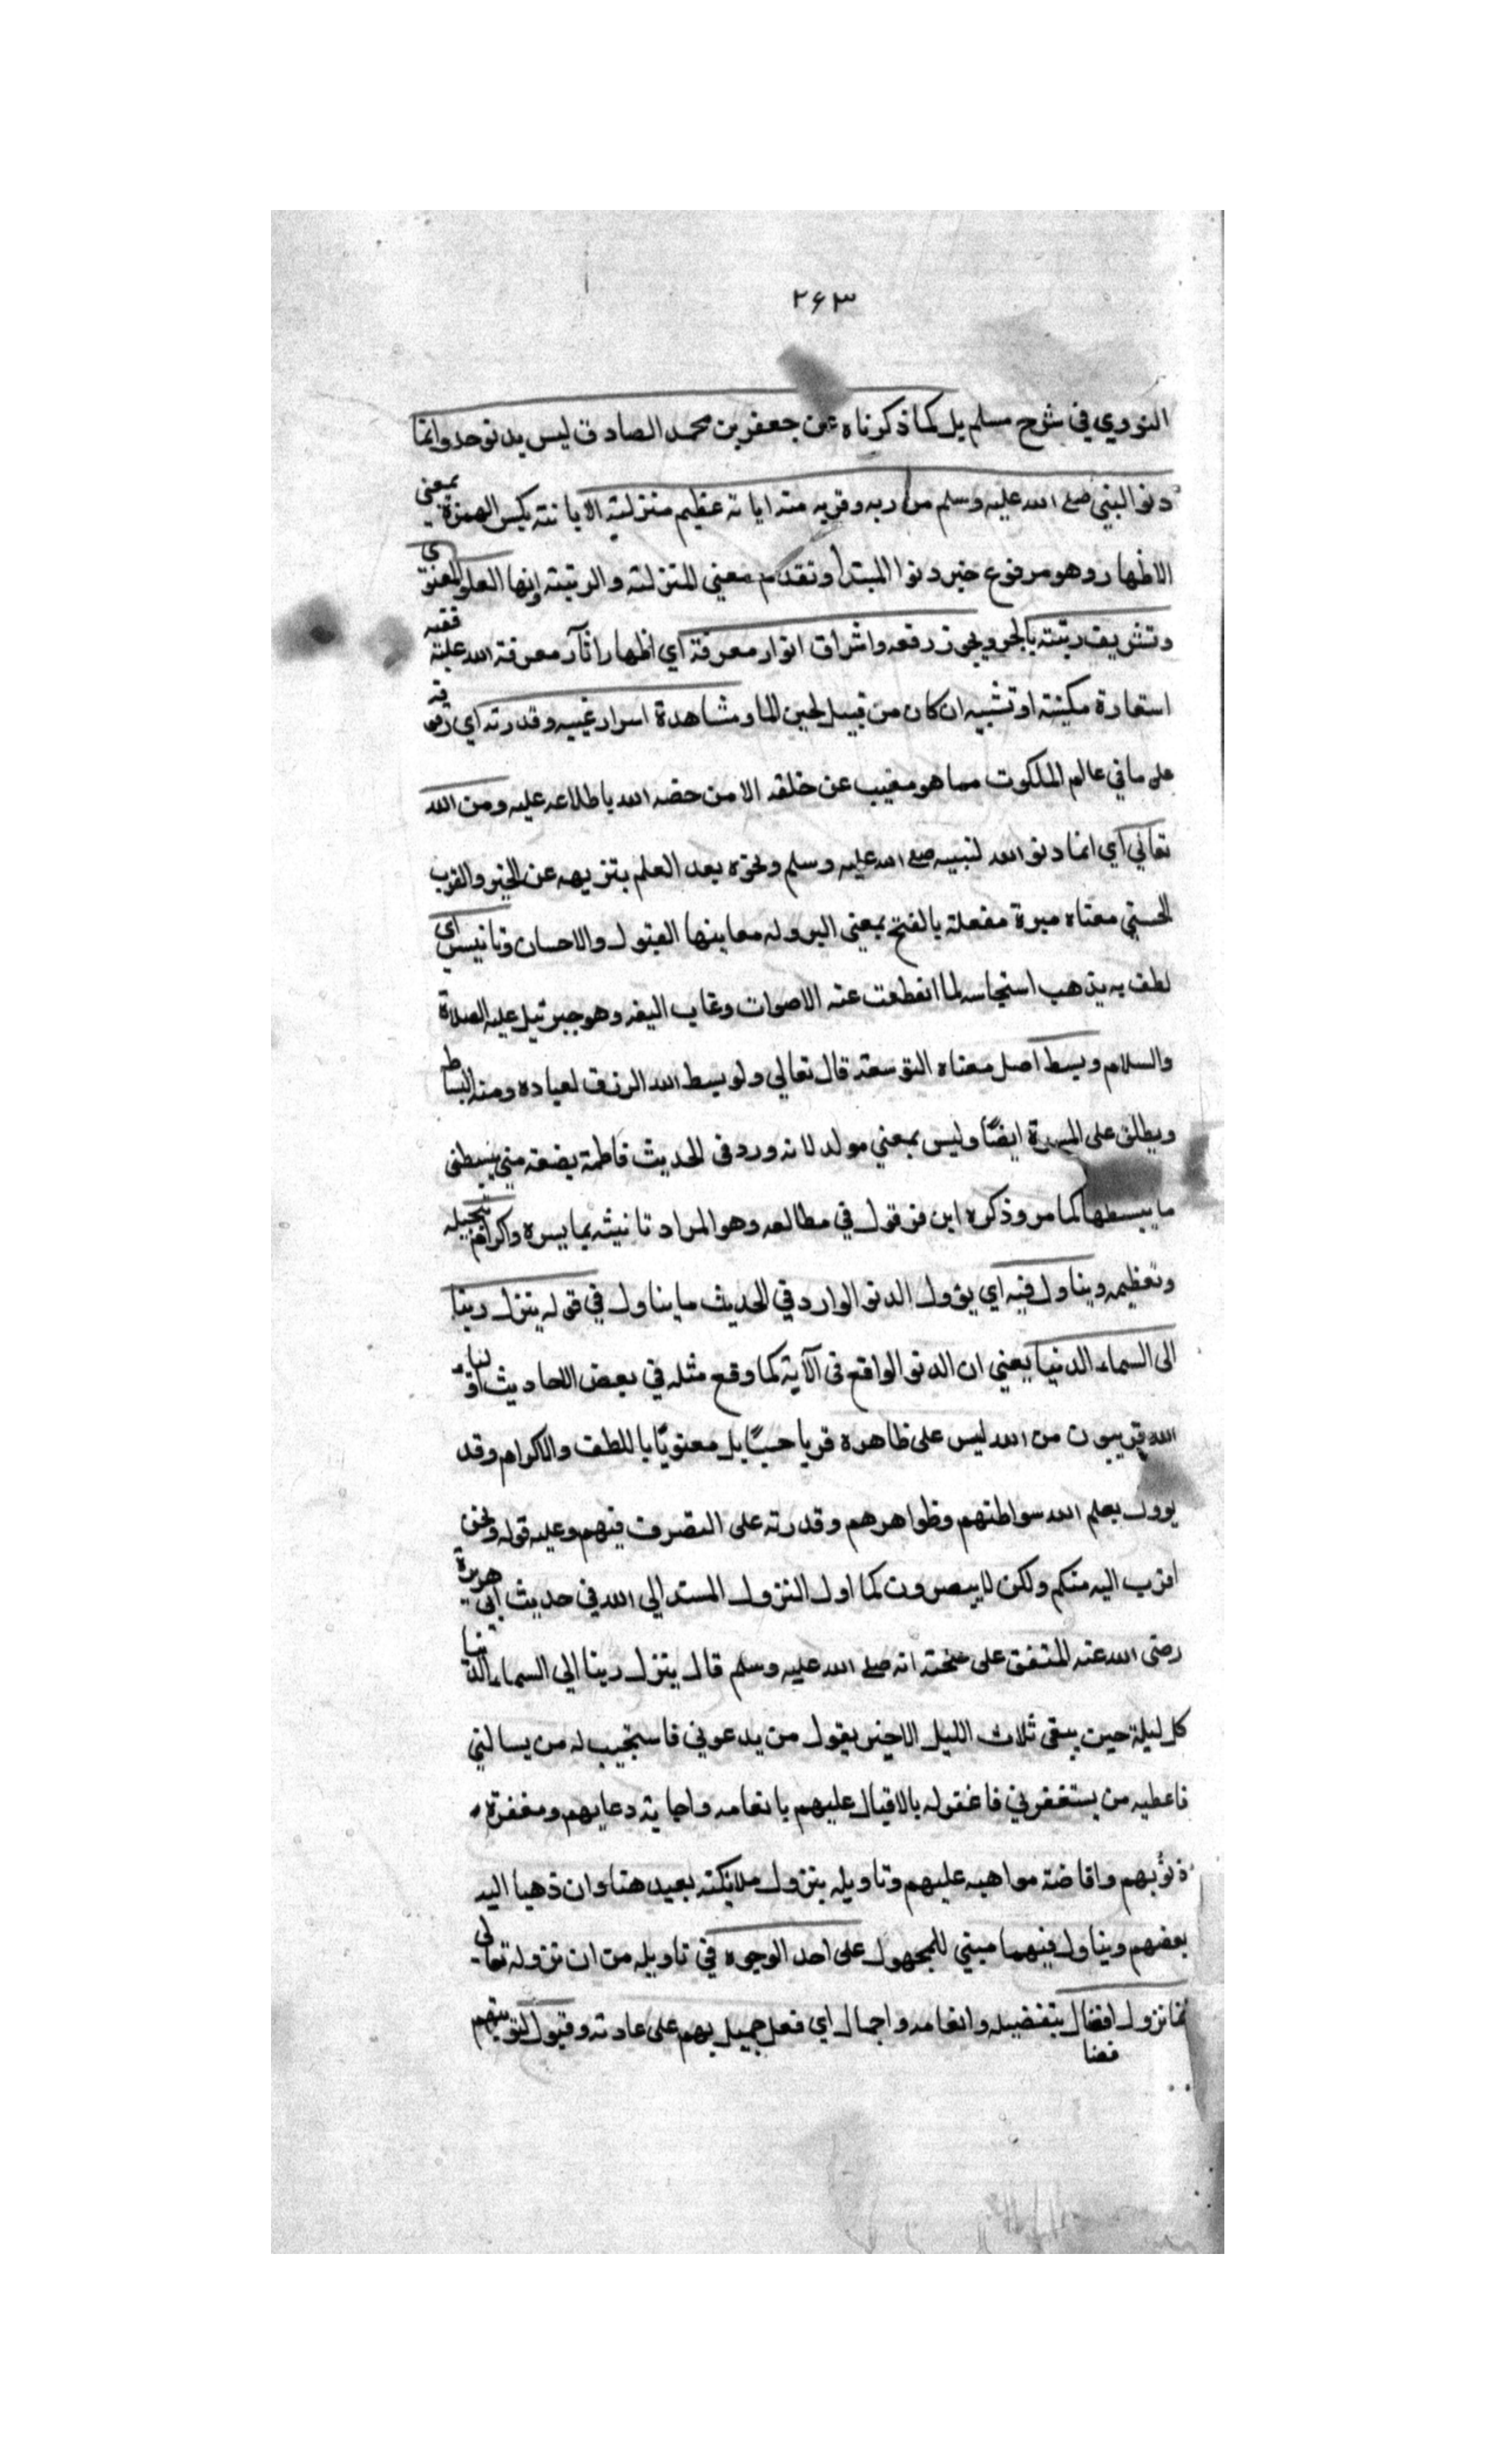 ٢٦٣
النووي في شرح مسلم بل كما ذكرناه عن جعفر بن محمد الصادق ليس بدنو حد وانما
دنو النبي صلى الله عليه وسلم من ربه وقربه منه ابانة عظيم منزلته الابانة بكسر الهمزة بمعنى
الاظهار وهو مرفوع خبر دنوا المبتدأ وتقدم معنى المنزلة والرتبة وانها العلو المعنوي
وتشريف رتبته بالجر ويجوز رفعه واشراق انوار معرفة اي اظهار اثار معرفة الله عليه ففيه
استعارة مكنية او تشبيه ان كان من قبيل لجين الماء ومشاهدة اسرار غيبه وقدرته اي وقوفه
على ما في عالم الملكوت مما هو مغيب عن خلقه الا من خصه الله باطلاعه عليه ومن الله
تعالى اي انما دنو الله لنبيه صلى الله عليه وسلم ونحوه بعد العلم بتنزيهه عن الحيز والقرب
الحسي معناه مبرة مفعلة بالفتح بمعنى البر وله معا منها القبول والاحسان وتانيس اي
لطف به يذهب استيحاشه لما انقطعت عنه الاصوات وغاب اليفه وهو جبرئيل عليه الصلاة
والسلام وبسط اصل معناه التوسعة قال تعالى ولو بسط الله الرزق لعباده ومنه البساط
ويطلق على المسرة ايضًا وليس بمعنى مولد لانه ورد في الحديث فاطمة بضعة مني يبسطني
ما يبسطها كما مر وذكره ابن قرقول في مطالعه وهو المراد تانيثه بما يسره واكرام تبجيله
وتعظيمه ويتاول فيه اي يؤول الدنو الوارد في الحديث ما يتاول في قوله ينزل ربنا
الى السماء الدنيا يعني ان الدنو الواقع في الآية كما وقع مثله في بعض الاحاديث اولياء
الله قريبون من الله ليس على ظاهره قربا حسيًا بل معنويًا باللطف والاكرام وقد
يوول بعلم الله بواطنهم وظواهرهم وقدرته على التصرف فيهم وعليه قوله ونحن
اقرب اليه منكم ولكن لا يبصرون كما اول النزول المسند الى الله في حديث ابي هريرة
رضى الله عنه المتفق على صحته انه صلى الله عليه وسلم قال ينزل ربنا الى السماء الدنيا
كل ليلة حين يبقى ثلاث الليل الاخير يقول من يدعوني فاستجيب له من يسالني
فاعطيه من يستغفرني فاغفر له بالاقبال عليهم بانعامه واجابة دعايهم ومغفرة
ذنوبهم وافاضة مواهبه عليهم وتاويله بنزول ملائكته بعيد هنا وان ذهبا اليه
بعضهم ويتاول فيهما مبني للمجهول على احد الوجوه في تاويله من ان نزوله تعالى
نزول افضال بتفضيله وانعامه واجمال اي فعل جميل بهم على عادته وقبول لتوبتهم